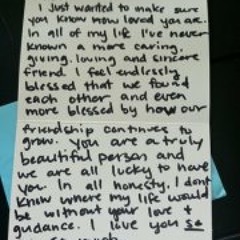 I just wanted to make sure
you know how loved you are.
In all of my life I've never
known a more caring,
giving, loving and sincere
friend. I feel endlessly
blessed that we found
each other and even
more blessed by how our
friendship continues to
grow. You are a truly
beautiful person and
we are all lucky to have
you. In all honesty, I don't
know where my life would
be without your love +
guidance. I love you so
much